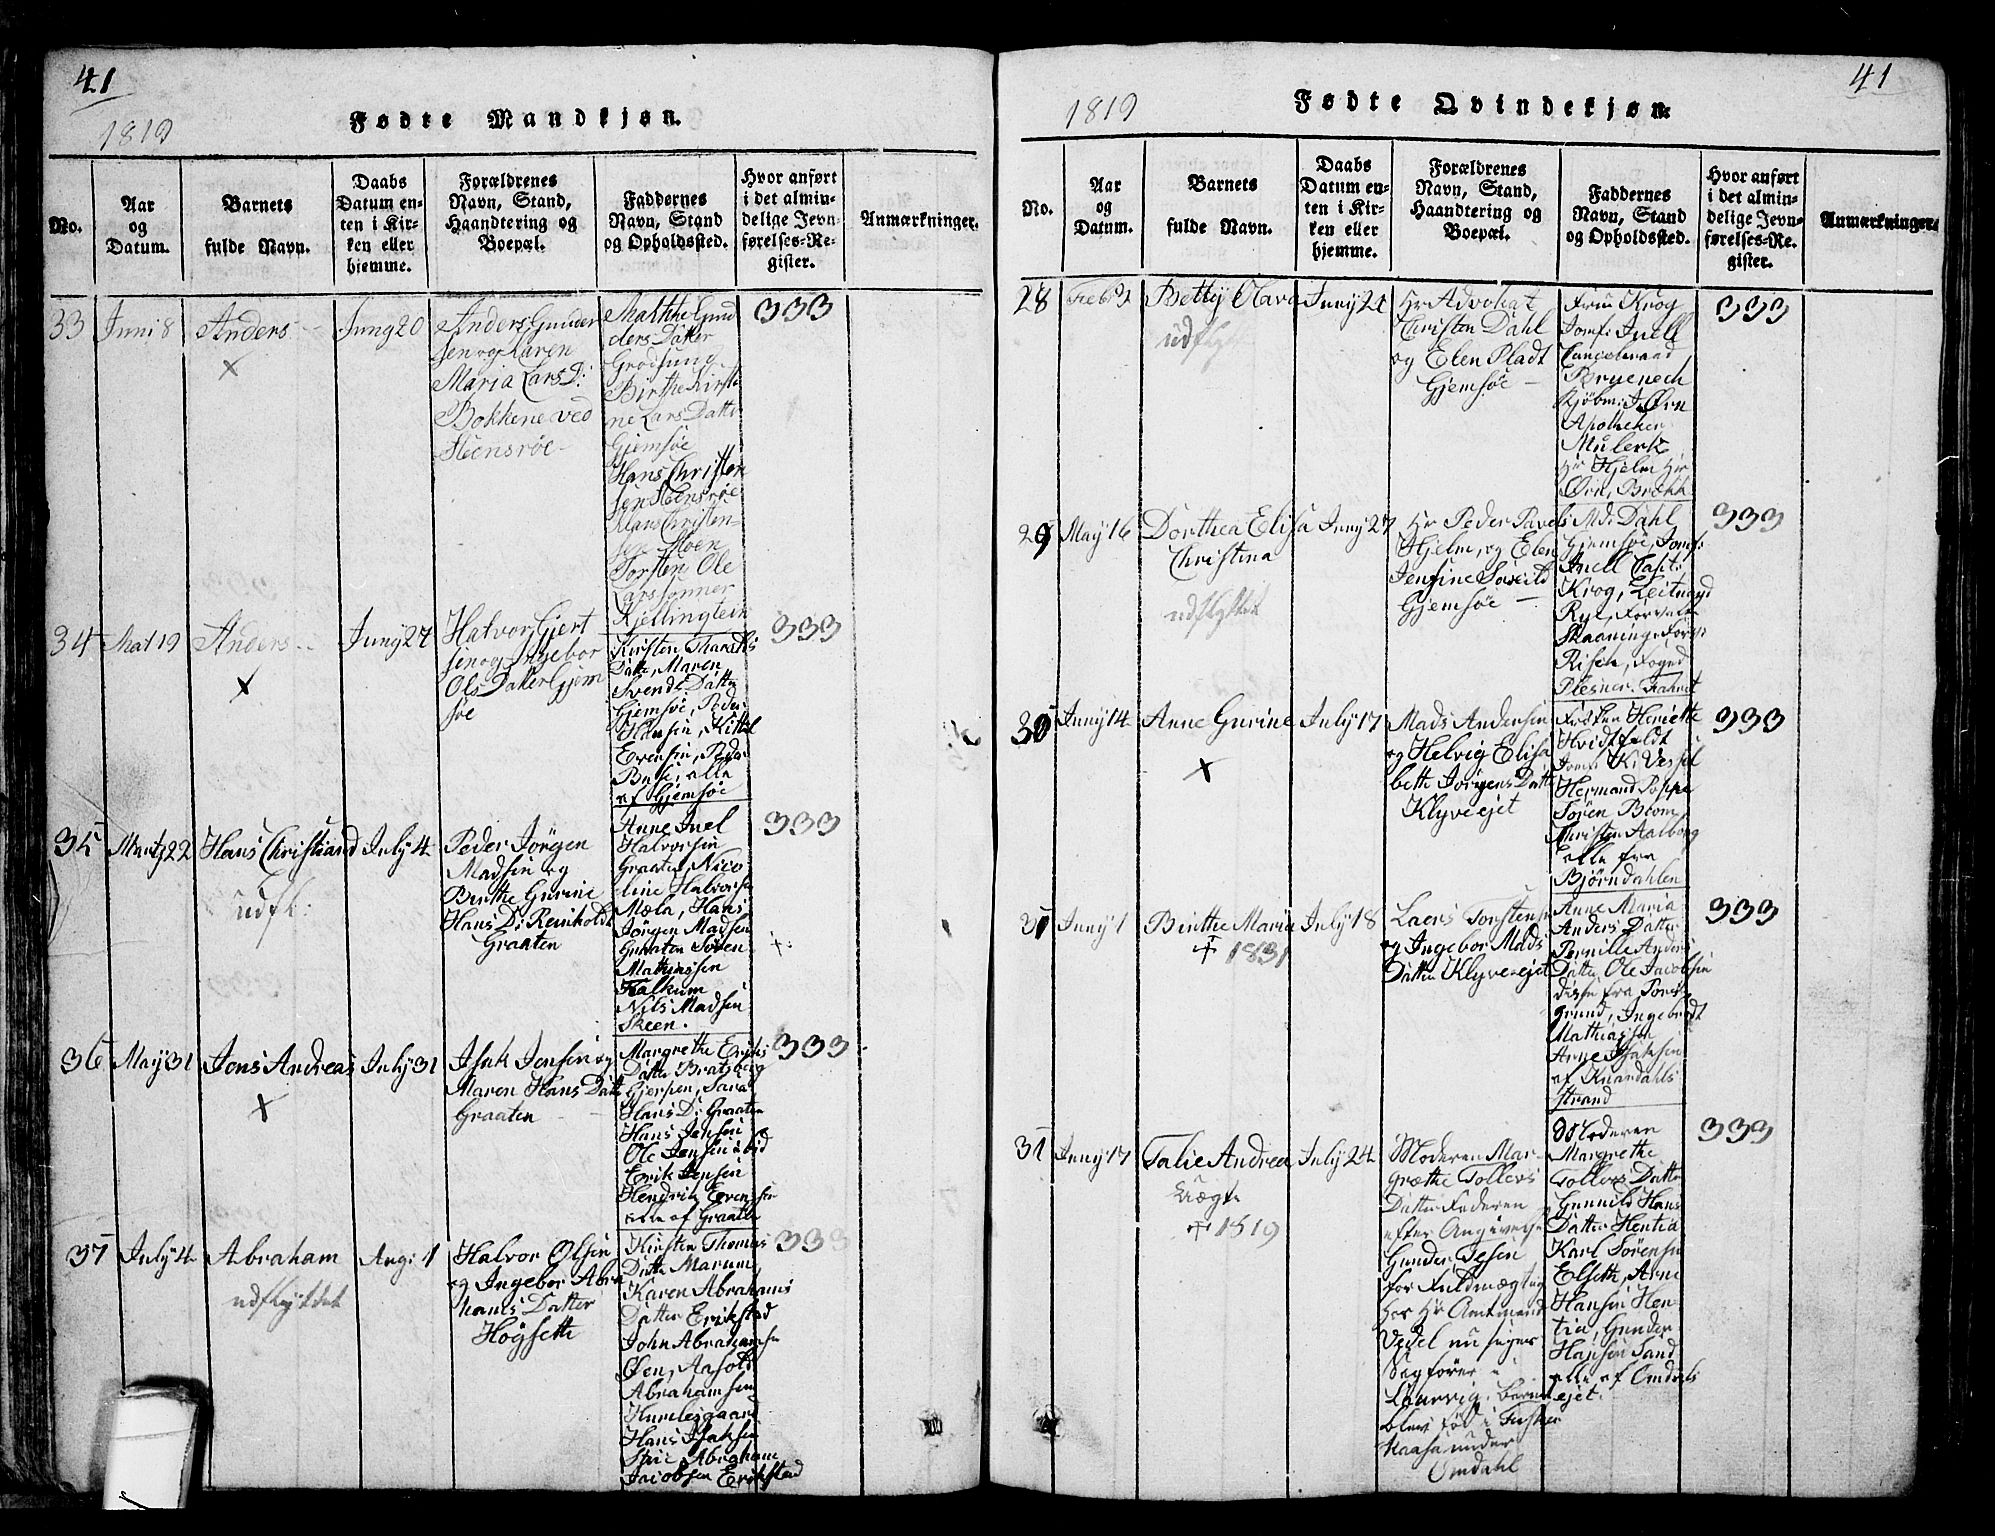 41
1819
Fødte Mandkjøn.
No.
Aar
og
Datum.
Barnets
fulde Navn.
Daabs
Datum en-
ten i Kir-
ken eller
hjemme.
Forældrenes
Navn, Stand,
Haandtering og
Boepæl.
Faddernes
Navn, Stand
og Opholdssted.
Hvor anført
i det almin-
delige Jevn-
førelses-Re-
gister.
Anmærkninger.
33
Juni 8
Anders
Juny 20
Anders Gunder
sen og Karen
Maria Lars D:
Bokkene ved
Steensrøe
Malthe Gun
ders Datter
Grodsung
Birthe Kirsti
ne Lars Datter
Gjemsøe
Hans Christen
sen Steensrøe
Hans Christen-
sen Moen
Torsten Ole
Larssønner
Kjellingtein
333
34
Mai 19
Anders
Juny 27
Halvor Gjert
sen og Ingebor
Ols Datter Gjem
søe
Kirsten
Datter, Maren
Svends Datter
Gjemsøe, Peder
Hansen, Kittil
Evensen, Peder
alle
af Gjemsøe
333
35
Martz 22
Hans Christiand
udfl:
July 4
Peder Jörgen
Madsen og
Birthe Gurine
Hans D: Reinholdt
Graaten
Anne Juel
Halvorsen
Graaten, Nico
line Halvorsen
Mæla, Hans
Jörgen Madsen
Graaten Søren
Mathiassen
Falkum
Nils Madsen
Skeen.
333
36
May 31
Jens Andreas
July 31
Isak Jensen og
Maren Hans Datt
Graaten
Margrethe Eriks
Datter Bratsberg
Gjerpen, Sara
Hans D: Graaten
Hans Jensen
Ole Jensen ibid
Erik Jensen
Hendrik Evensen
alle af Graaten
333
37
July 4
Abraham
udflyttet
Aug: 1
Halvor Olsen
og Ingebor Abra
hams Datter
Høgseth
Kirsten Thomas
Datter Marum,
Karen Abrahams
Datter Erikstad
John Abrahamsen
Øen, Aasold
Abrahamsen
Humlesgaard
Hans Isaksen
Abraham
Jacobsen Erikstad
333
41
1819
Fødte Qvindekjøn.
No.
Aar
og
Datum.
Barnets
fulde Navn.
Daabs
Datum en-
ten i Kir-
ken eller
hjemme.
Forældrenes
Navn, Stand,
Haandtering og
Boepæl.
Faddernes
Navn, Stand
og Opholdssted.
Hvor anført
i det almin-
delige Jevn-
førelses-Re-
gister.
Anmærkninger.
28
Febr 2
Betty Olava
udflyt
Juny 21
Hr Advokat
Christen Dahl
og Elen Pladt
Gjemsøe
Frue Krog
Jomf: Juell
Cancelieraad
Bryenech
Kjöbm: J: Ørn
Apotheker
Mulerk
Hr Hjelm Hr
Ørn, Brækk
333
29
May 16
Dorthea Elisa
Christina
udflyttet
Juny 27
Hr Peder Pavels
Hjelm, og Elen
Jensine Søveild
Gjemsøe
Md: Dahl
Gjemsøe, Jomf:
Juell Capt:
Krog, Leitnand
Rye, Forvalt
Skaaning, Forv:
Risen, Foged
Plesner.
333
30
Juny 14
Anne Gurine
July 17
Mads Andersen
og Helvig Elisa
beth Jörgens Datt
Klyveejet
Frøken Heriette
Hvidtfeldt
Jomf: K: Vessel
Hermand Poppe
Søren Blom
Christen Aalborg
alle fra
Björndahlen
333
31
Juny 1
Birthe Maria
1831
July 18
Laers Torstens
og Ingebor Mads
Datter Klyveejet
Anne Maria
Anders Datter
Pernille Anders
Datter Ole Jacobsen
disse fra Pors
grund, Ingebredt
Mathiassen
Arne Isaksen
af Knardahls
strand
333
31
Juny 17
Talie Andrea
Uægte
1819
July 24
Moderen Mar-
græthe Tollevs
Datter Faderen
efter Angivelse
Gunder Tesen
for Fuldmægtig
hos Hr Amtmand
Vedel nu siger
Sagförer i
Laurvig. Barnet
blev fød i Fisker
Kaasa under
Omdahl
Moderen
Margrethe
Tollevs Datter
Gunnild Hans
Datter Hentia
Karl Sørensen
Elseth, Arne
Hansen Hen-
tia, Gunder
Hansen Sand
alle af Omdals
ejet.
333